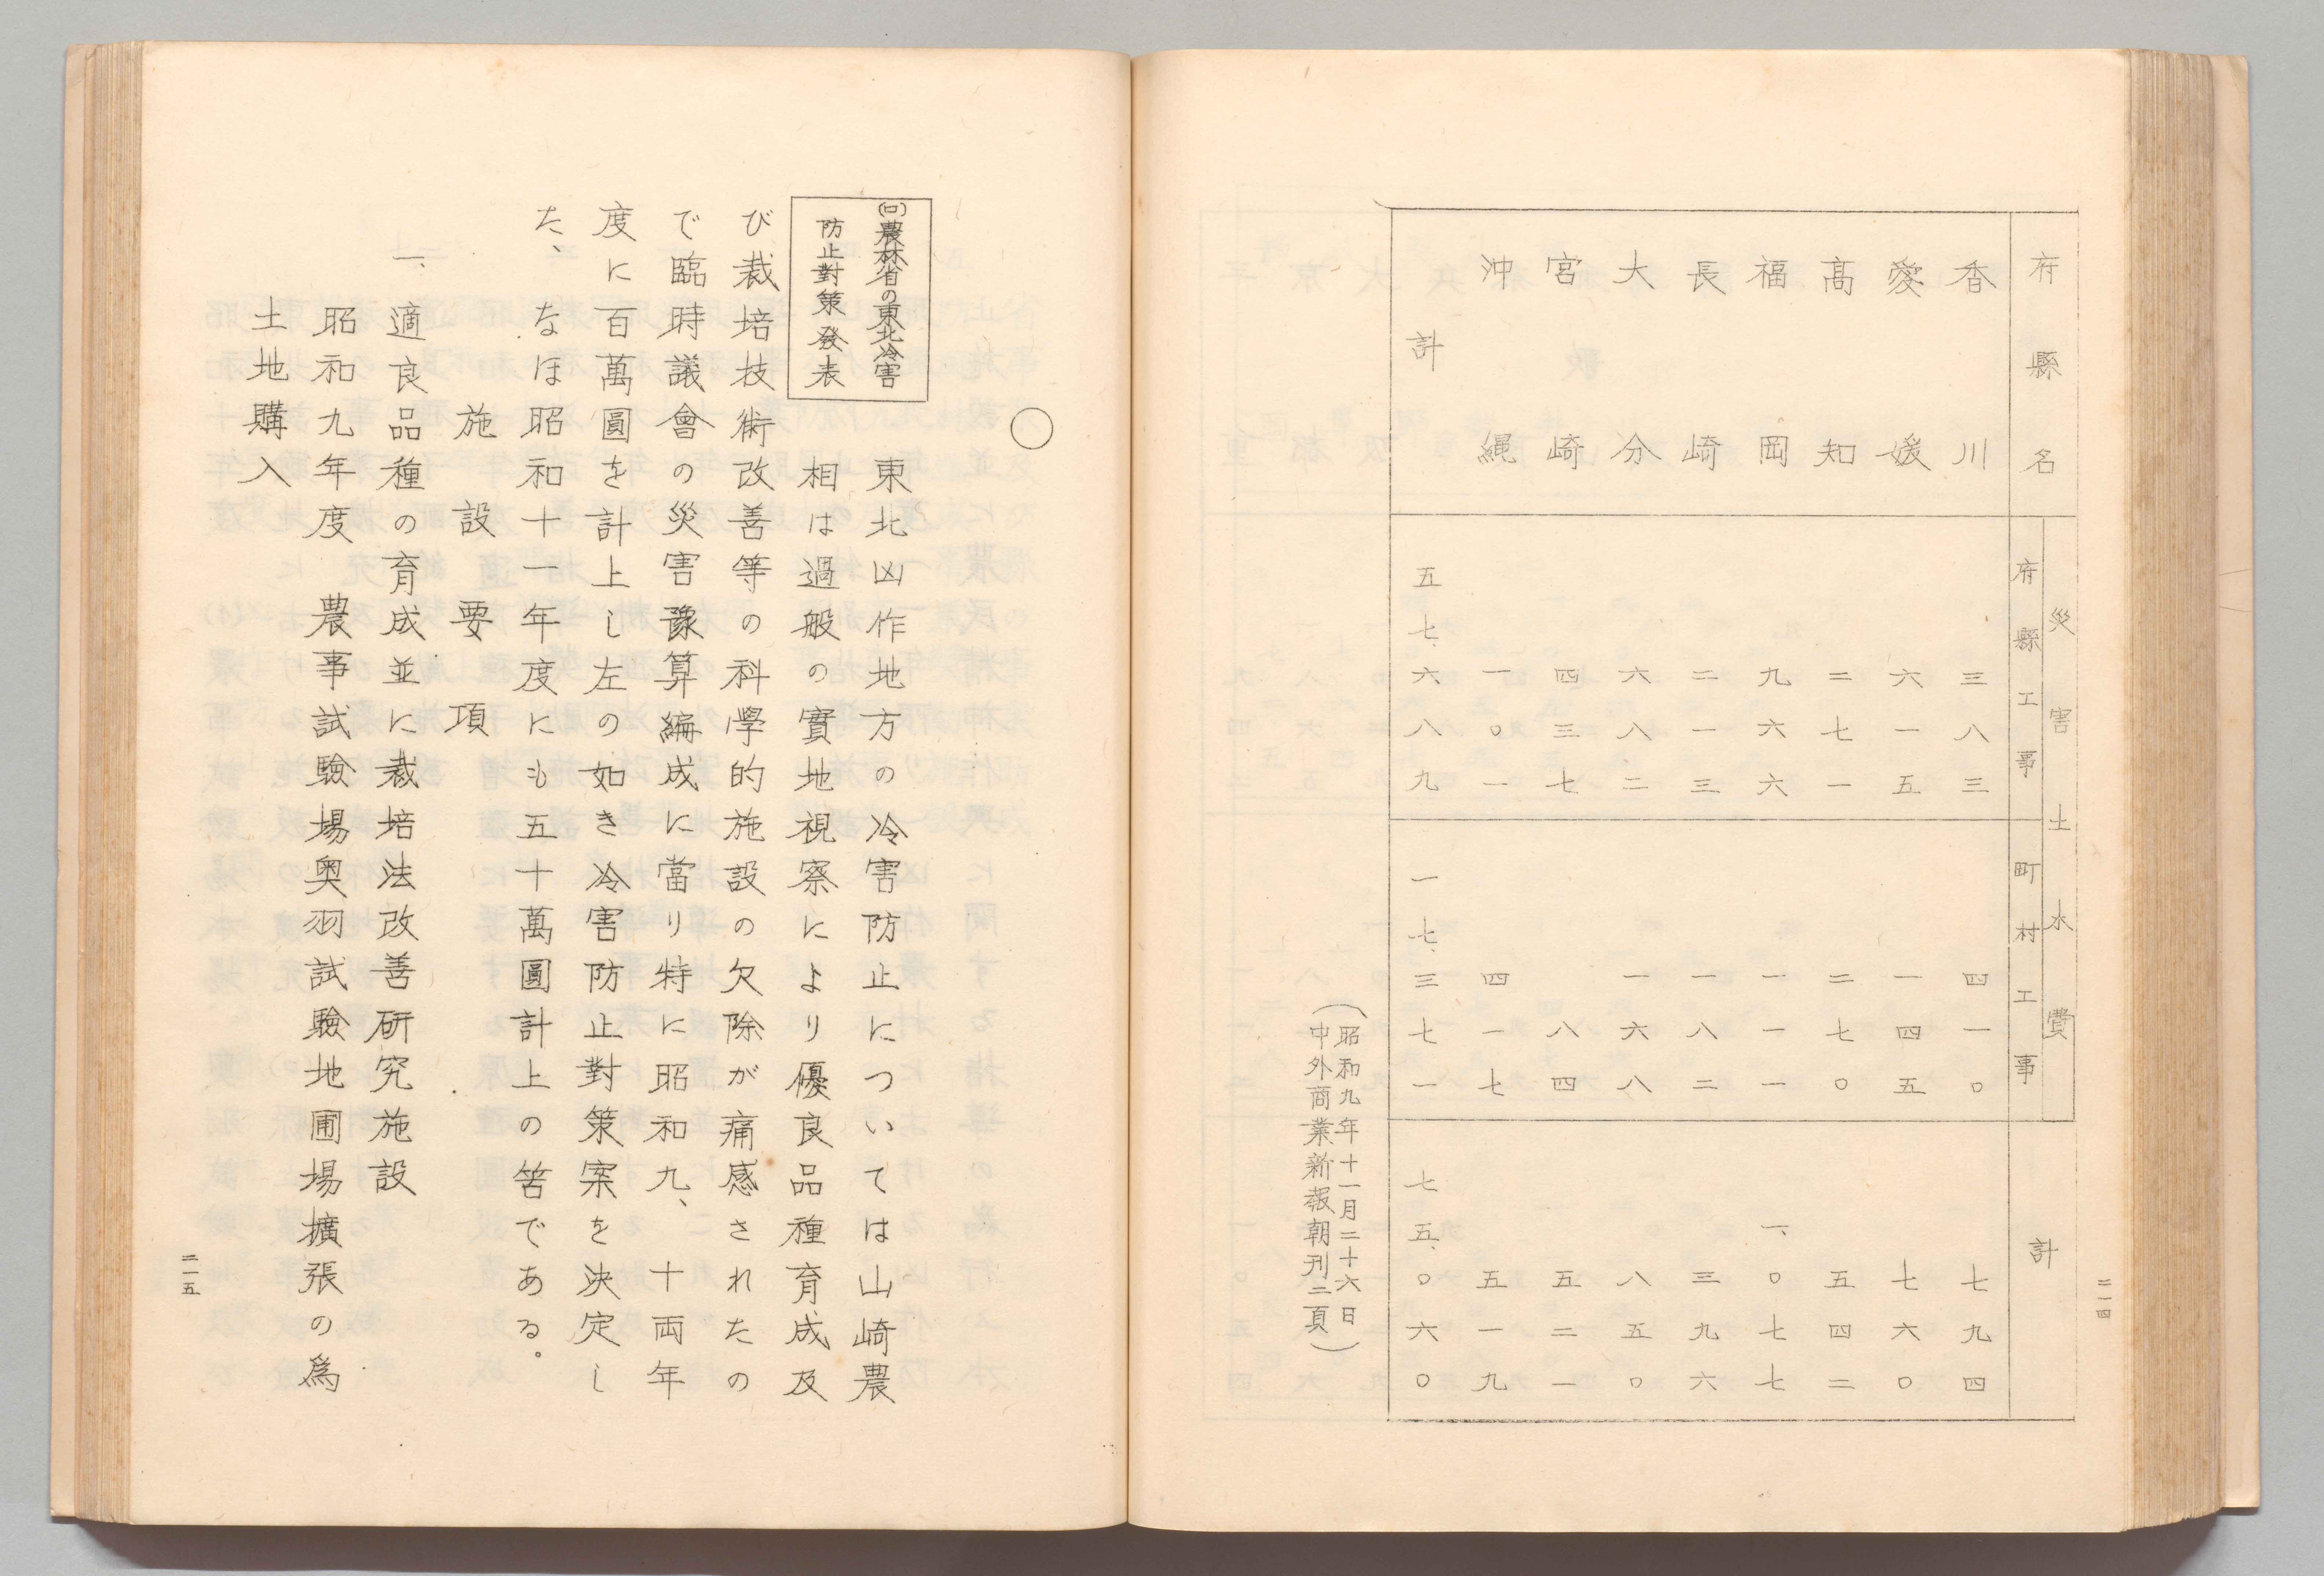 二一四
府縣名 災害土木費 計
府縣工事 町村工事
香川 三八三 四一〇 七九四
愛媛 六一五 一四五 七六〇
髙知 二七一 二七〇 五四二
福岡 九六六 一一一 一、〇七七
長崎 二一三 一八二 三九六
大分 六八二 一六八 八五〇
宮崎 四三七 八四 五二一
沖縄 一〇一 四一七 五一九
計 五七、六八九 一七、三七一 七五、〇六〇
(昭和九年十一月二十六日
中外商業新報朝刊二頁)
○
(ロ)農林省の東北冷害
防止對策發表
東北凶作地方の冷害防止については山崎農
相は過般の實地視察により優良品種育成及
び裁培技術改善等の科學的施設の欠除が痛感されたの
で臨時議會の災害豫算編成に當り特に昭和九、十両年
度に百萬圓を計上し左の如き冷害防止對策案を決定し
た、なほ昭和十一年度にも五十萬圓計上の筈である。
施設要項
一、適良品種の育成並に裁培法改善研究施設
昭和九年度 農事試驗場奥羽試驗地圃場擴張の爲
土地購入
二一五